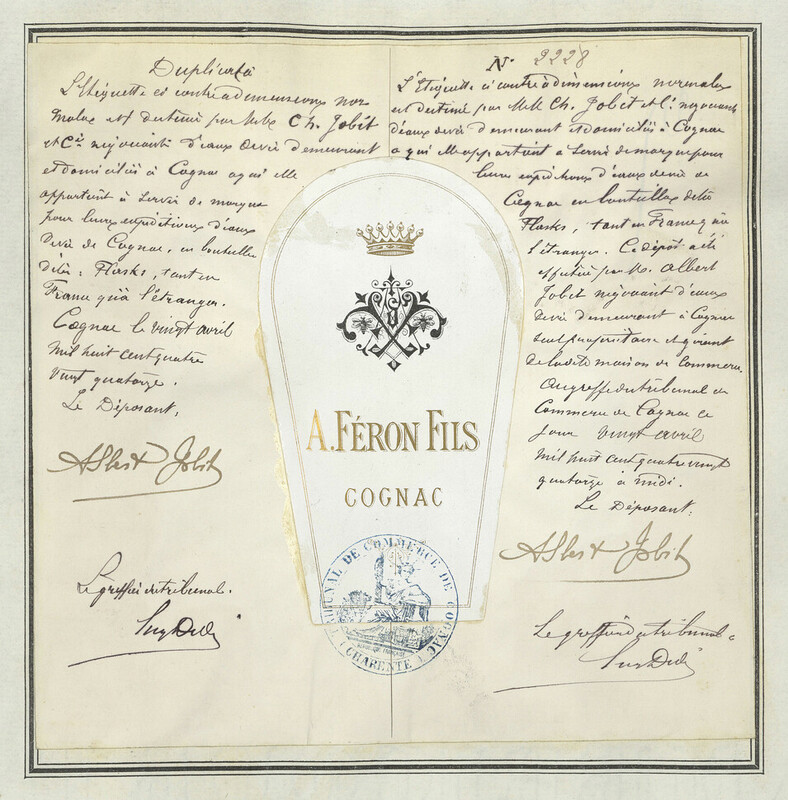 Duplicata
L'Etiquette ci contre a dimensions nor
males est destiné par M.M. Ch. Jobit
et Cie négociants d'eaux de vie demeurant
et domiciliés à Cognac a qui elle
appartient à servir de marque
pour leurs expéditions d'eaux
de vie de Cognac, en bouteilles
dites : Flasks, tant en
France qu'à l'étranger.
Cognac le vingt avril
mil huit cent quatre
vingt quatorze.
Le Déposant,
Albert Jobit
Le greffier du tribunal.
No 2228
L'Etiquette ci contre à dimensions normales
est destiné par M.M. Ch. Jobit et Cie négociants
d'eaux de vie demeurant et domiciliés à Cognac
a qui elle appartient a servir de marque pour
leurs expéditions d'eaux de vie de
Cognac en bouteilles dites
Flasks, tant en France qu'à
l'étranger. Ce dépôt a été
effectué par M. Albert
Jobit négociant d'eaux
de vie demeurant à Cognac
seul propriétaire et gérant
de la dite maison de commerce.
Au greffe du tribunal de
Commerce de Cognac ce
jour vingt avril
mil huit cent quatre vingt
quatorze à midi.
Le Déposant,
Albert Jobit
Le greffier du tribunal
A. FÉRON FILS
COGNAC
TRIBUNAL DE COMMERCE DE COGNAC
(CHARENTE)